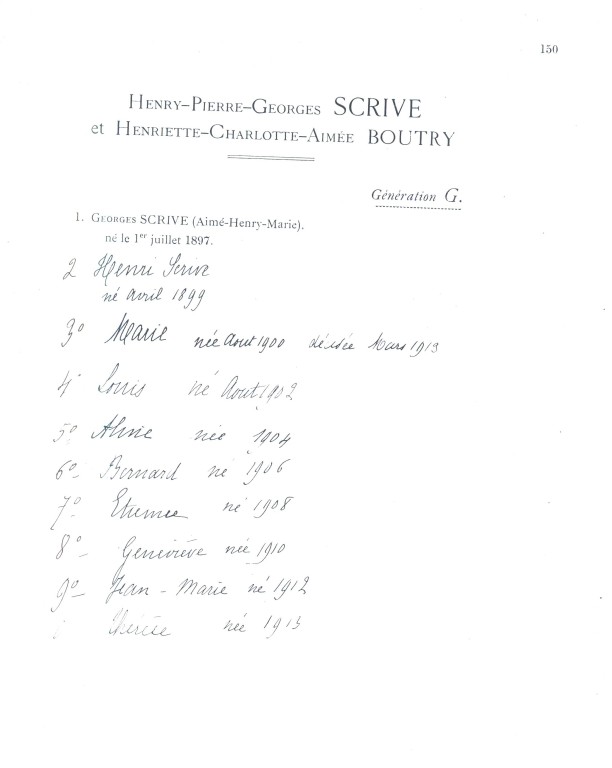 150
Henry-Pierre-Georges SCRIVE
et Henriette-Charlotte-Aimée BOUTRY
Génération G.
1. Georges SCRIVE (Aimé-Henry-Marie).
né le 1er juillet 1897.
2 Henri Scrive
né avril 1899
3° Marie née Aout 1900 décédée Mars 1913
4° Louis né Aout 1902
5° Aline née 1904
6°- Bernard né 1906
7°- Etienne né 1908
8°- Geneviève née 1910
9°- Jean-Marie né 1912
née 1913